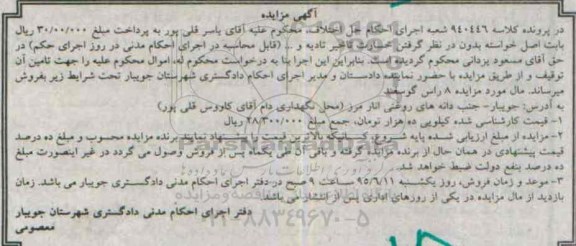 آگهی مزایده
در پرونده کلاسه ۹۴۰۴۴۶ شعبه اجرای احکام حل اختلاف، محکوم علیه آقای یاسر قلی پور به پرداخت مبلغ ۳۰/۰۰۰/۰۰۰ ریال
بابت اصل خواسته بدون در نظر گرفتن خسارت تاخیر تادیه و ... (قابل محاسبه در اجرای احکام مدنی در روز اجرای حکم) در
حق آقای مسعود یزدانی محکوم گردیده است. بنابراین این اجرا بنا به درخواست محکوم له، اموال محکوم علیه را جهت تامین آن
توقیف و از طریق مزایده با حضور نماینده دادستان و مدیر اجرای احکام دادگستری شهرستان جویبار تحت شرایط زیر بفروش
میرساند. مال مورد مزایده ۸ راس گوسفند
به آدرس: جویبار- جنب دانه های روغنی انار مرز (محل نگهداری دام آقای کاووس قلی پور)
۱- قیمت کارشناسی شده کیلویی ده هزار تومان، جمع مبلغ ۲۸/۳۰۰/۰۰۰ ریال
۲- مزایده از مبلغ ارزیابی شده پایه شروع، کسانیکه بالاترین قیمت را پیشنهاد نمایند برنده مزایده محسوب و مبلغ ده درصد
قیمت پیشنهادی در همان حال از برنده مزایده گرفته و باقی آن طی یکماه پس از فروش وصول می گردد در غیر اینصورت مبلغ
ده درصد بنفع دولت ضبط خواهد شد.
۳- موعد و زمان فروش، روز یکشنبه ۹۵/۶/۱۱ ساعت ۹ صبح در دفتر اجرای احکام مدنی دادگستری جویبار می باشد. زمان
بازدید از مال مزایده در یکی از روزهای اداری پس از انتشار می باشد.
دفتر اجرای احکام مدنی دادگستری شهرستان جویبار
معصومی
ParsNamadData
۰۲۱-۸۸۳۴۹۶۷۰-۵